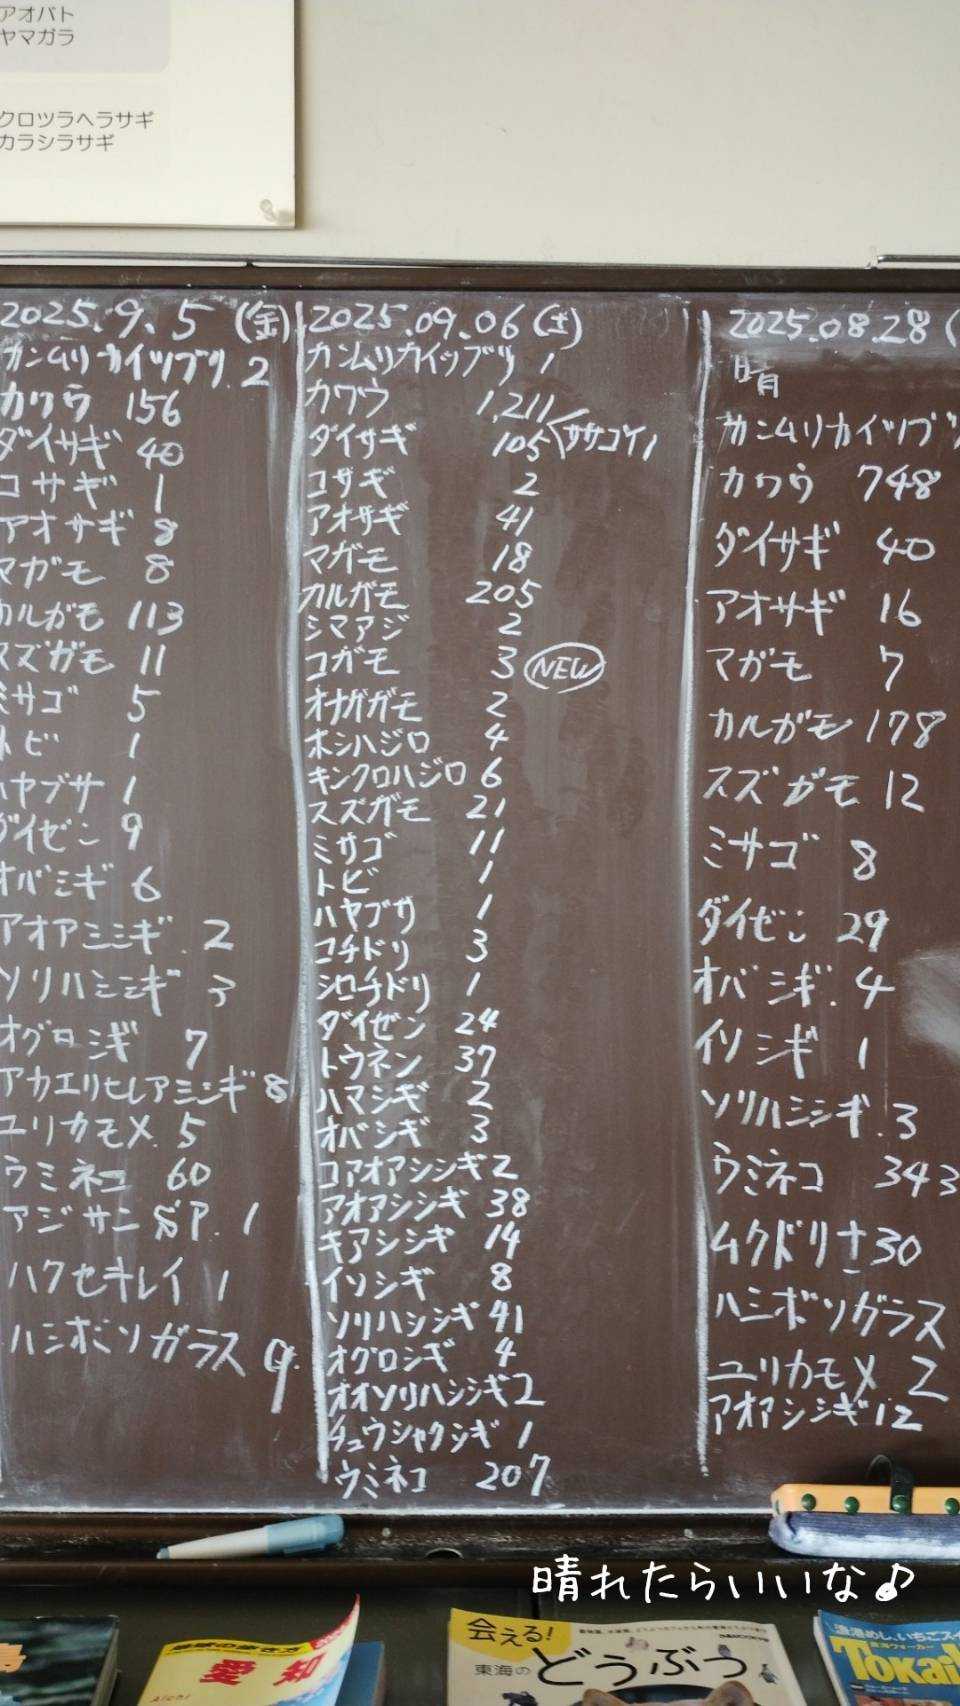 アオバト
ヤマガラ
クロツラヘラサギ
カラシラサギ
2025.9.5(金)
カンムリカイツブリ 2
カワウ 156
ダイサギ 40
コサギ 1
アオサギ 8
マガモ 8
カルガモ 113
スズガモ 11
ミサゴ 5
トビ 1
ハヤブサ 1
ダイゼン 9
オバシギ 6
アオアシシギ. 2
ソリハシシギ 3
オグロシギ 7
アカエリヒレアシシギ 8
ユリカモメ. 5
ウミネコ 60
アジサシsp. 1
ハクセキレイ 1
ハシボソガラス 9.
2025.09.06(土)
カンムリカイツブリ 1
カワウ 1,211
ダイサギ 105 ササゴイ1
コサギ 2
アオサギ 41
マガモ 18
カルガモ 205
シマアジ 2
コガモ 3 NEW
オナガガモ 2
ホシハジロ 4
キンクロハジロ 6
スズガモ 21
ミサゴ 11
トビ 1
ハヤブサ 1
コチドリ 3
シロチドリ 1
ダイゼン 24
トウネン 37
ハマシギ 2
オバシギ 3
コアオアシシギ 2
アオアシシギ 38
キアシシギ 14
イソシギ 8
ソリハシシギ 41
オグロシギ 4
オオソリハシシギ 2
チュウシャクシギ 1
ウミネコ 207
2025.08.28(
晴
カンムリカイツブ
カワウ 748
ダイサギ 40
アオサギ 16
マガモ 7
カルガモ 178
スズガモ 12
ミサゴ 8
ダイゼン 29
オバシギ. 4
イソシギ 1
ソリハシシギ. 3
ウミネコ 343
ムクドリ 30
ハシボソガラス
ユリカモメ 2
アオアシシギ 12
晴れたらいいな♪
島
地球の歩き方
愛知
Aichi
会える!
東海の
どうぶつ
漁港めし、いちごス
東海ウォーカー
Tokai